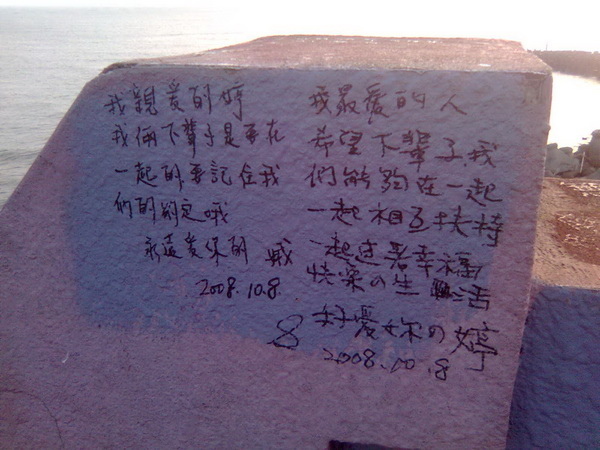 我親愛的婷
我倆下輩子是要在
一起的要記住我
們的約定哦
永遠愛你的 娥
2008.10.8
我最愛的人
希望下輩子,我
們能夠在一起
一起相互扶持
一起过著幸福
快樂の生活
好愛妳の婷
2008.10.8